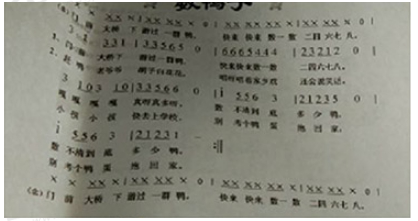 数鸭子
门前 大桥 下 游过 一群 鸭， 快来 快来 数一 数 二四 六七 八。
3 1 3 3 1 | 3 3 5 6 5 0 | 6 6 6 5 4 4 4 | 2 3 2 1 2 0 |
门前 大桥下 游过一群鸭， 快来快来数一数 二四六七八。
老爷爷 胡子白花花， 唱呀唱着家乡戏 还会说笑话。
3 1 0 3 1 0 | 3 3 5 6 6 0 | i 5 5 6 3 | 2 1 2 3 5 0 |
嘎 嘎 嘎 嘎 真呀真多呀， 数 不清到 底 多 少 鸭，
小 孩 小 孩 快去上学校， 别 考个鸭 蛋 抱 回 家，
i 5 5 6 3 | 2 1 2 3 1
数 不清到 底 多 少 鸭。
别 考个鸭 蛋 抱 回 家。
门 前 大桥 下 游过 一群 鸭， 快来 快来 数一 数 二四 六七 八。